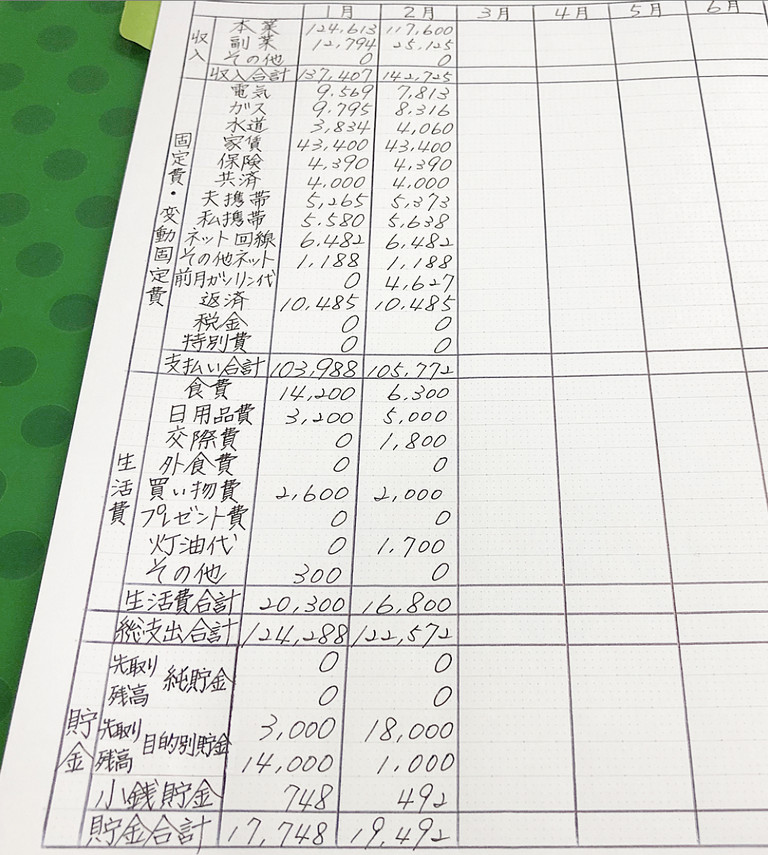 1月 2月 3月 4月 5月 6月
収入
本業 124,613 117,600
副業 12,794 25,125
その他 0 0
収入合計 137,407 142,725
固定費・変動固定費
電気 9,569 7,813
ガス 9,795 8,316
水道 3,834 4,060
家賃 43,400 43,400
保険 4,390 4,390
共済 4,000 4,000
夫携帯 5,265 5,373
私携帯 5,580 5,638
ネット回線 6,482 6,482
その他ネット 1,188 1,188
前月ガソリン代 0 4,627
返済 10,485 10,485
税金 0 0
特別費 0 0
支払い合計 103,988 105,772
生活費
食費 14,200 6,300
日用品費 3,200 5,000
交際費 0 1,800
外食費 0 0
買い物費 2,600 2,000
プレゼント費 0 0
灯油代 0 1,700
その他 300 0
生活費合計 20,300 16,800
総支出合計 124,288 122,572
貯金
先取り 純貯金 0 0
残高 0 0
先取り 目的別貯金 3,000 18,000
残高 14,000 1,000
小銭貯金 748 492
貯金合計 17,748 19,492